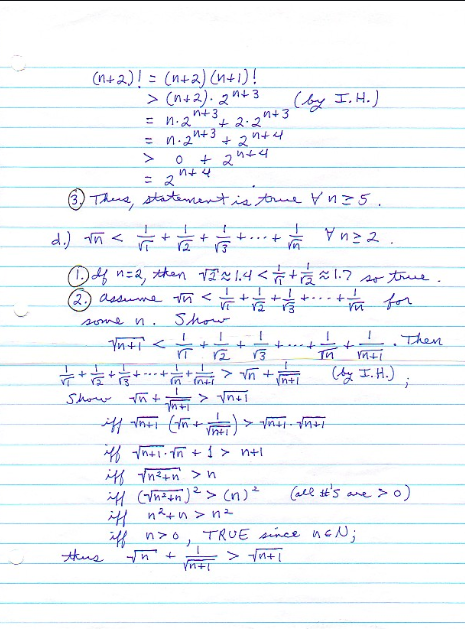 (n+2)! = (n+2)(n+1)!
> (n+2)·2ⁿ⁺³ (by I.H.)
= n·2ⁿ⁺³ + 2·2ⁿ⁺³
= n·2ⁿ⁺³ + 2ⁿ⁺⁴
> 0 + 2ⁿ⁺⁴
= 2ⁿ⁺⁴.
③ Thus, statement is true ∀ n ≥ 5.
d.) √n < 1/√1 + 1/√2 + 1/√3 + ··· + 1/√n ∀ n ≥ 2.
①. If n=2, then √2 ≈ 1.4 < 1/√1 + 1/√2 ≈ 1.7 so true.
②. Assume √n < 1/√1 + 1/√2 + 1/√3 + ··· + 1/√n for
some n. Show
√n+1 < 1/√1 + 1/√2 + 1/√3 + ··· + 1/√n + 1/√n+1. Then
1/√1 + 1/√2 + 1/√3 + ··· + 1/√n + 1/√n+1 > √n + 1/√n+1 (by I.H.);
Show √n + 1/√n+1 > √n+1
iff √n+1 (√n + 1/√n+1) > √n+1·√n+1
iff √n+1·√n + 1 > n+1
iff √n²+n > n
iff (√n²+n)² > (n)² (all #'s are > 0)
iff n²+n > n²
iff n>0, TRUE since n∈N;
thus √n + 1/√n+1 > √n+1